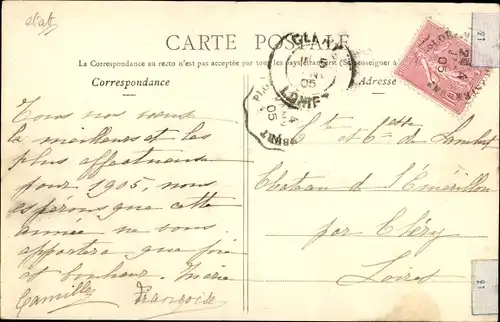 etab
CARTE POSTALE
La Correspondance au recto n'est pas acceptée par tous les pays étrangers (Se renseigner à
Correspondance
Adresse
Tous nos vœux
la meilleurs et les
plus affectueux
pour 1905, nous
espérons que cette
année ne vous
apportera que joie
et bonheur. Marie
Camille Françoise
Cte et Ctesse de Lambily
Chateau de l'Emérillon
par Cléry
Loiret
05
LOIRET
4
05
PLO
4
05
21
21